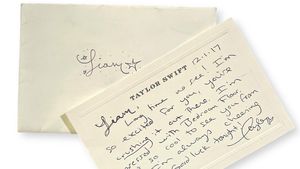 Liam
TAYLOR SWIFT
12.1.17
Liam,
Long time no see! I'm
so excited for you, you're
crushing it out there. I'm
with Bedroom Floor
so cool to see you from
I'm always cheering
Good luck tonight!
Taylor